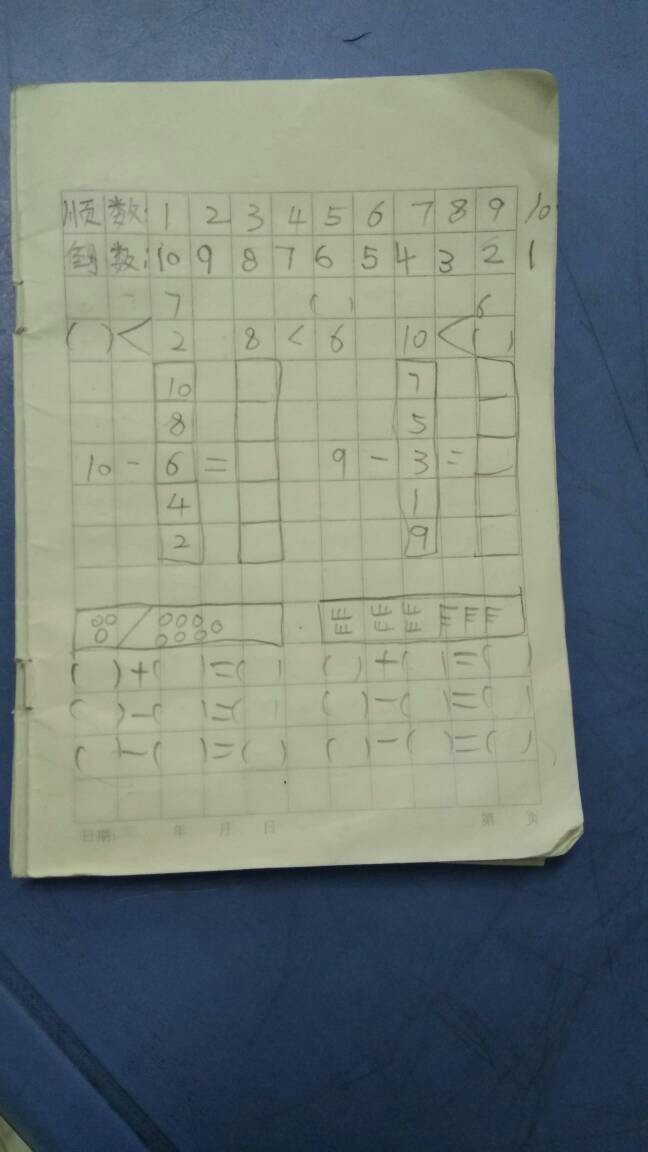 顺数: 1 2 3 4 5 6 7 8 9 10
倒数: 10 9 8 7 6 5 4 3 2 1
7 ( ) 6
( ) < 2 8 < 6 10 < ( )
10 7
8 5
10 - 6 = 9 - 3 =
4 1
2 9
( ) + ( ) = ( ) ( ) + ( ) = ( )
( ) - ( ) = ( ) ( ) - ( ) = ( )
( ) - ( ) = ( ) ( ) - ( ) = ( )
日期: 年 月 日 第 页